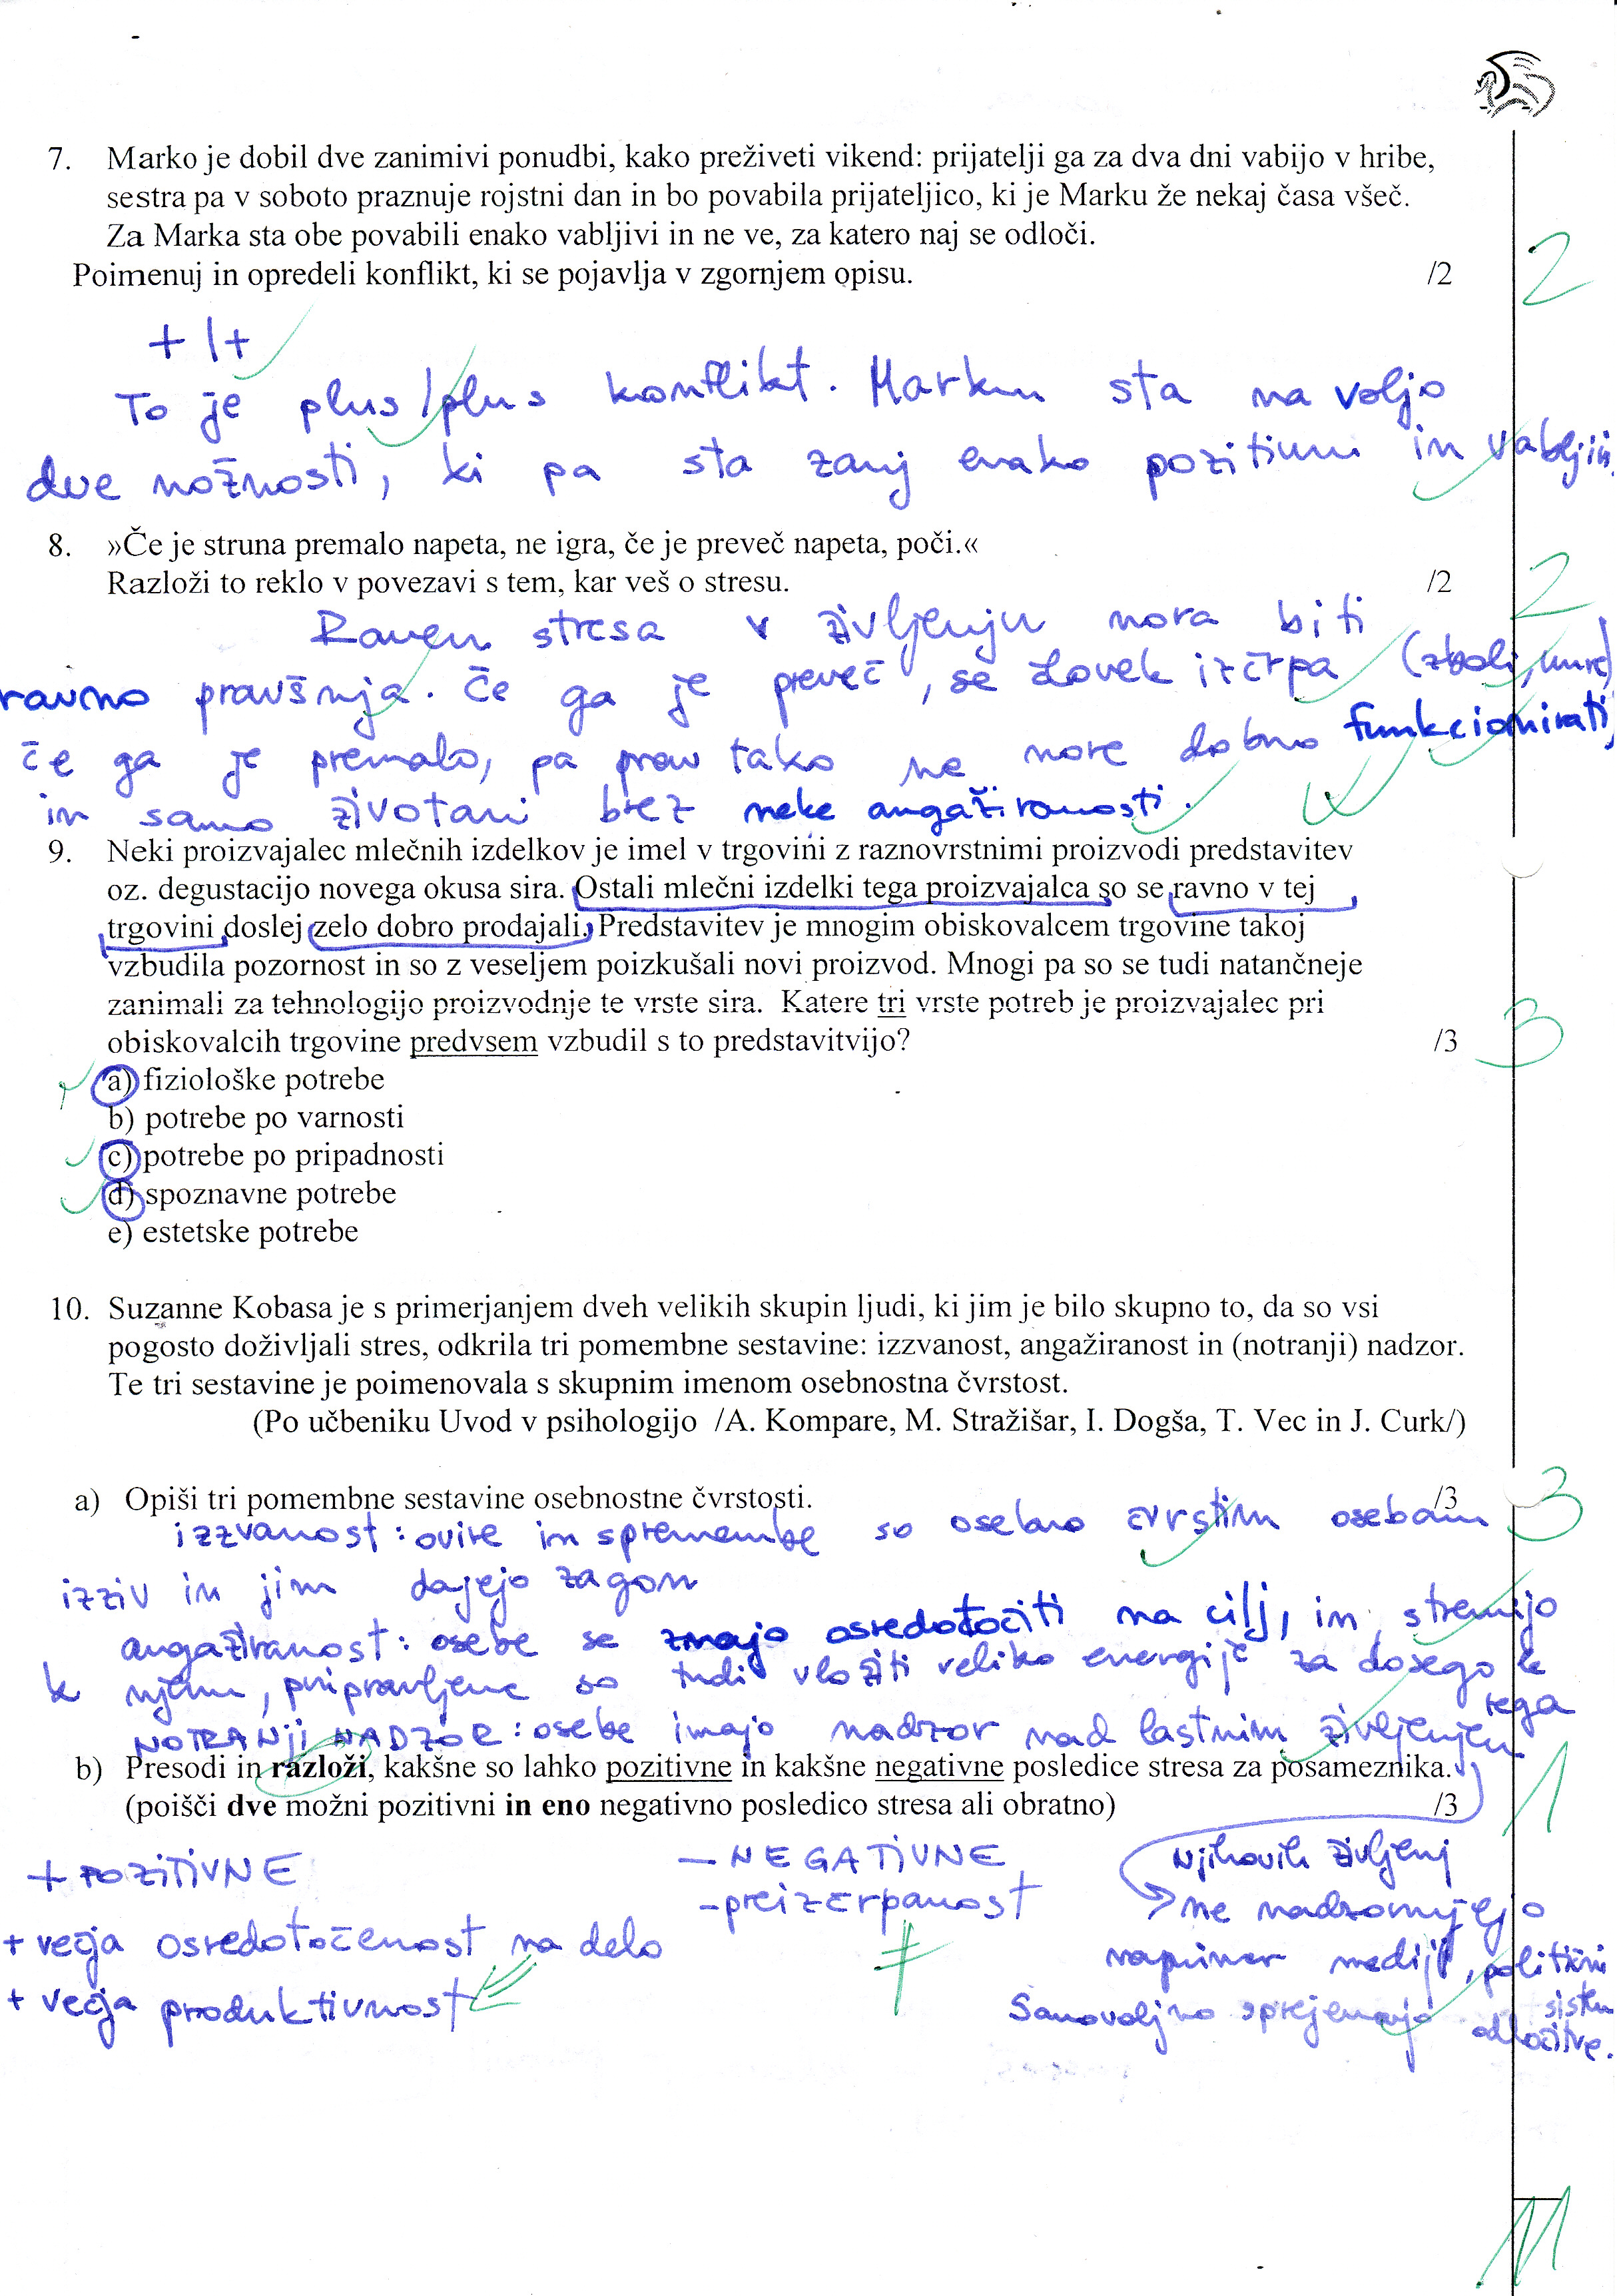 7. Marko je dobil dve zanimivi ponudbi, kako preživeti vikend: prijatelji ga za dva dni vabijo v hribe,
sestra pa v soboto praznuje rojstni dan in bo povabila prijateljico, ki je Marku že nekaj časa všeč.
Za Marka sta obe povabili enako vabljivi in ne ve, za katero naj se odloči.
Poimenuj in opredeli konflikt, ki se pojavlja v zgornjem opisu. /2 2
+/+
To je plus/plus konflikt. Marku sta na voljo
dve možnosti, ki pa sta zanj enako pozitivni in vabljivi.
8. »Če je struna premalo napeta, ne igra, če je preveč napeta, poči.«
Razloži to reklo v povezavi s tem, kar veš o stresu. /2 2
Raven stresa v življenju mora biti
ravno pravšnja. Če ga je preveč, se človek izčrpa (zboli, umre)
če ga je premalo, pa prav tako ne more dobro funkcionirati,
in samo životari brez neke angažiranosti.
9. Neki proizvajalec mlečnih izdelkov je imel v trgovini z raznovrstnimi proizvodi predstavitev
oz. degustacijo novega okusa sira. Ostali mlečni izdelki tega proizvajalca so se ravno v tej
trgovini doslej zelo dobro prodajali. Predstavitev je mnogim obiskovalcem trgovine takoj
vzbudila pozornost in so z veseljem poizkušali novi proizvod. Mnogi pa so se tudi natančneje
zanimali za tehnologijo proizvodnje te vrste sira. Katere tri vrste potreb je proizvajalec pri
obiskovalcih trgovine predvsem vzbudil s to predstavitvijo? /3 3
a) fiziološke potrebe
b) potrebe po varnosti
c) potrebe po pripadnosti
d) spoznavne potrebe
e) estetske potrebe
10. Suzanne Kobasa je s primerjanjem dveh velikih skupin ljudi, ki jim je bilo skupno to, da so vsi
pogosto doživljali stres, odkrila tri pomembne sestavine: izzvanost, angažiranost in (notranji) nadzor.
Te tri sestavine je poimenovala s skupnim imenom osebnostna čvrstost.
(Po učbeniku Uvod v psihologijo /A. Kompare, M. Stražišar, I. Dogša, T. Vec in J. Curk/)
a) Opiši tri pomembne sestavine osebnostne čvrstosti. /3 3
izzvanost: ovire in spremembe so osebno čvrstim osebam
izziv in jim dajejo zagon
angažiranost: osebe se znajo osredotočiti na cilj, in stremijo
k njemu, pripravljene so tudi vložiti veliko energije za dosego le
tega
NOTRANJI NADZOR: osebe imajo nadzor nad lastnim življenjem
b) Presodi in razloži, kakšne so lahko pozitivne in kakšne negativne posledice stresa za posameznika.
(poišči dve možni pozitivni in eno negativno posledico stresa ali obratno) /3 1
+ POZITIVNE
+ večja osredotočenost na delo
+ večja produktivnost
- NEGATIVNE
- preizčrpanost
Njihovih življenj
ne nadzorujejo
naprimer mediji, politični
sistem
Samovoljno sprejemajo odločitve.
11